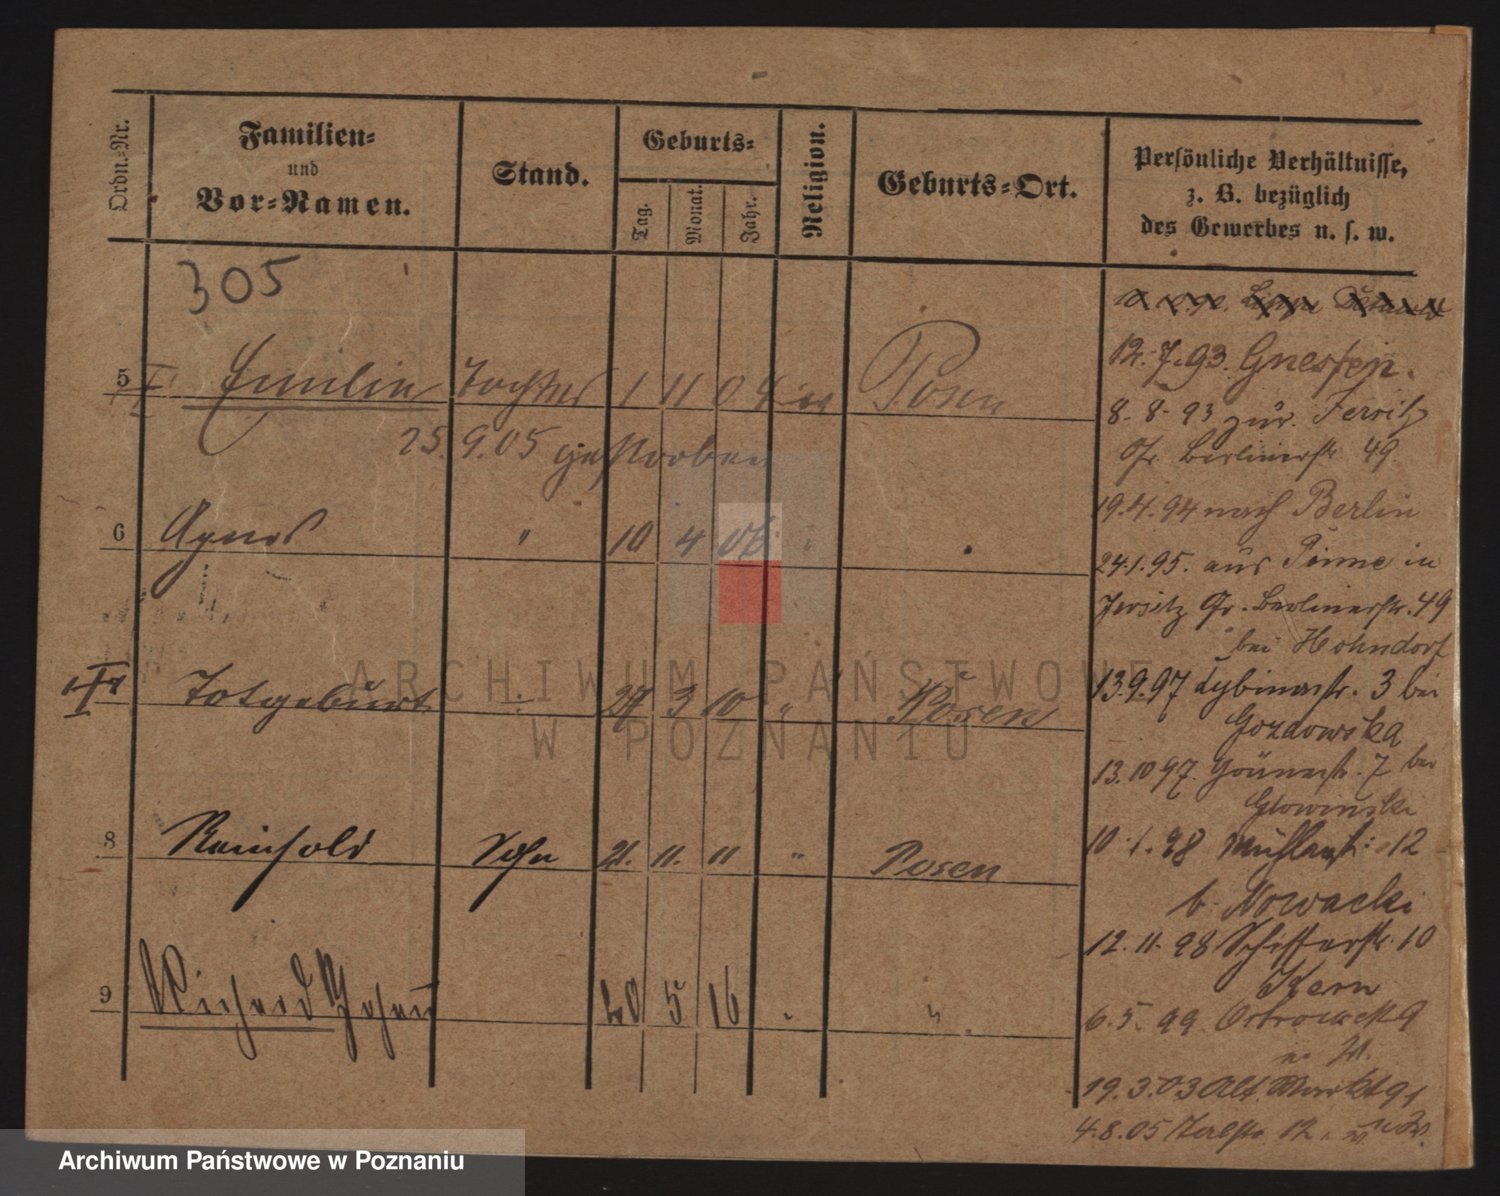 Ordn.=Nr.
Familien=
und
Vor=Namen.
Stand.
Geburts=
Tag.
Monat.
Jahr.
Religion.
Geburts=Ort.
Persönliche Verhältnisse,
z. B. bezüglich
des Gewerbes u. s. w.
305
5 Emilie Tochter 1 11 04 Posen
25.9.05 gestorben
6 Agnes " 10 4 06 "
Totgeburt 27 3 10 " Posen
8 Reinhold Sohn 21. 11. 11 " Posen
9 Richard Johann 20 5 16 "
12.7.93 Gnesen.
8.8.93 zur. Jersitz
Gr. Berlinerstr. 49
19.4.94 nach Berlin
24.1.95. aus Pinne in
Jersitz Gr. Berlinerstr. 49
bei Hohndorf
13.9.97 Lybinastr. 3 bei
Gozdowska
13.10.97. 7 bei
Glowinski
10.1.98 Mühlenstr. 12
b. Nowacki
12.11.98 Schifferstr. 10
Kern
6.5.99 9
19.3.03 Alt. Markt 91
4.8.05 12
ARCHIWUM PAŃSTWOWE
W POZNANIU
Archiwum Państwowe w Poznaniu